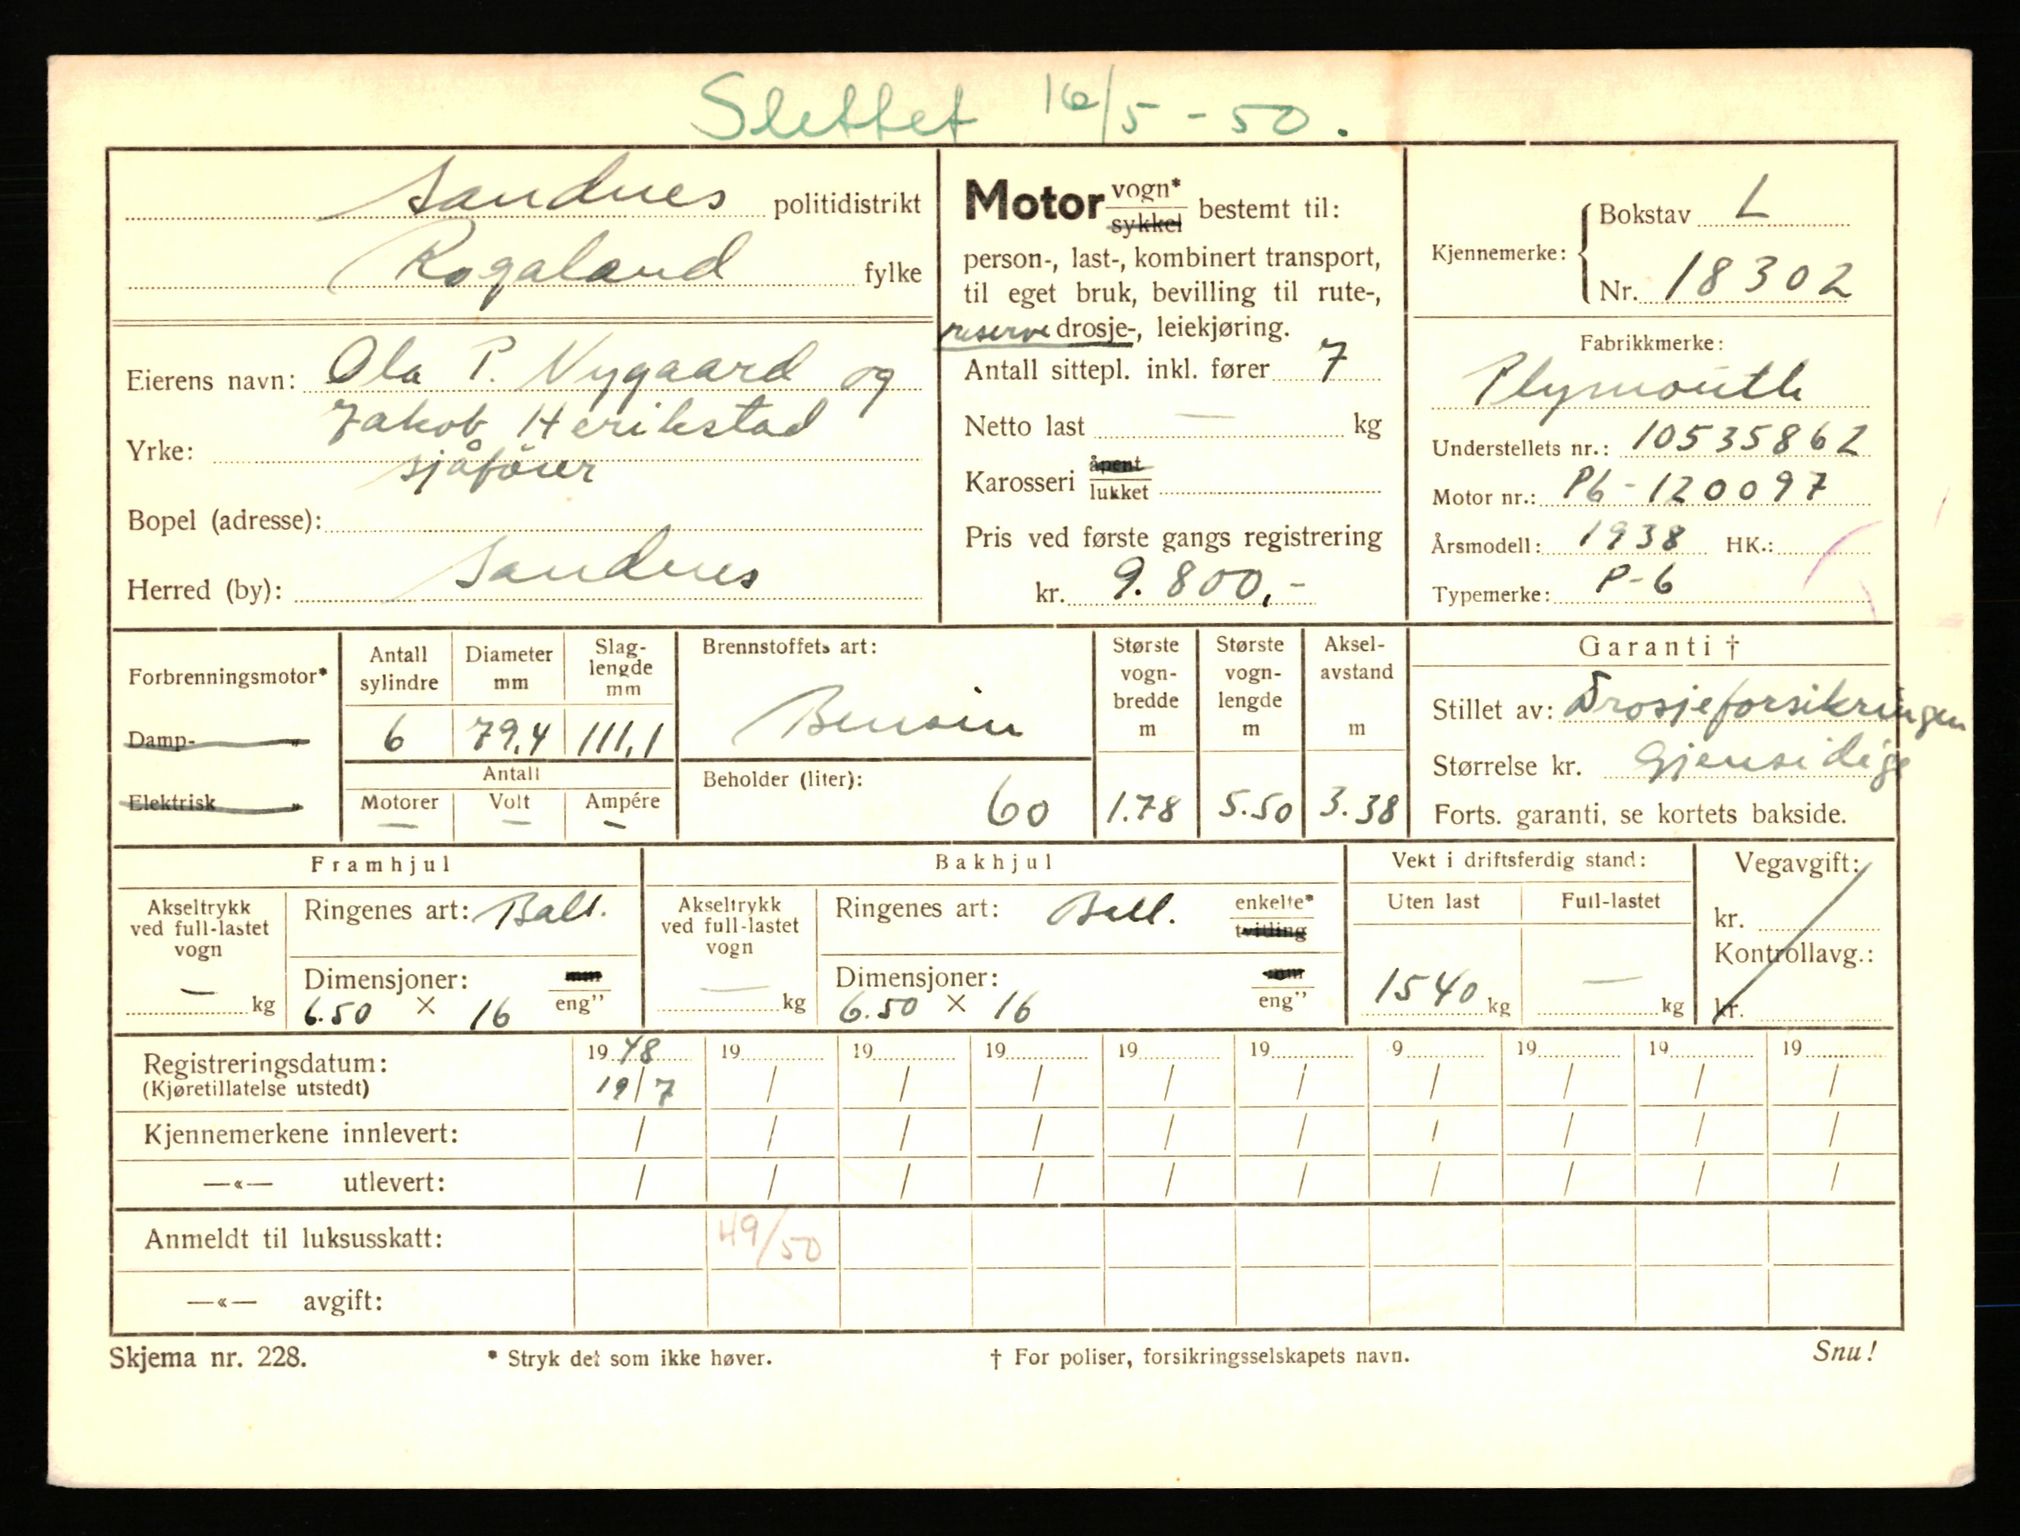 Slettet 16/5 - 50.
Sandnes politidistrikt
Rogaland fylke
Eierens navn: Ola P. Nygaard og
Jakob Herikstad
Yrke: sjåfører
Bopel (adresse):
Herred (by): Sandnes
Motor vogn* sykkel bestemt til:
person-, last-, kombinert transport,
til eget bruk, bevilling til rute-,
reserve drosje-, leiekjøring.
Antall sittepl. inkl. fører 7
Netto last — kg
Karosseri åpent lukket
Pris ved første gangs registrering
kr. 9.800,-
Kjennemerke: Bokstav L
Nr. 18302
Fabrikkmerke:
Plymouth
Understellets nr.: 10535862
Motor nr.: P6-120097
Årsmodell: 1938 HK.:
Typemerke: P-6
Forbrenningsmotor*
Damp- „
Elektrisk „
Antall sylindre
6
Diameter mm
79,4
Slag-lengde mm
111,1
Antall
Motorer —
Volt —
Ampére —
Brennstoffets art:
Bensin
Beholder (liter):
60
Største vogn-bredde m
1.78
Største vogn-lengde m
5.50
Aksel-avstand m
3.38
Garanti †
Stillet av: Drosjeforsikringen
Størrelse kr. Gjensidige
Forts. garanti, se kortets bakside.
Framhjul
Akseltrykk ved full-lastet vogn
— kg
Ringenes art: Ball.
Dimensjoner: mm
6.50 × 16 eng”
Bakhjul
Akseltrykk ved full-lastet vogn
— kg
Ringenes art: Ball. enkelte* tvilling
Dimensjoner: mm
6.50 × 16 eng”
Vekt i driftsferdig stand:
Uten last
1540 kg
Full-lastet
— kg
Vegavgift:
kr.
Kontrollavg.:
kr.
Registreringsdatum: 19 48 19 19 19 19 19 9 19 19 19
(Kjøretillatelse utstedt) 19/7 / / / / / / / / /
Kjennemerkene innlevert: / / / / / / / / / /
—«— utlevert: / / / / / / / / / /
Anmeldt til luksusskatt: 49/50
—«— avgift:
Skjema nr. 228. * Stryk det som ikke høver. † For poliser, forsikringsselskapets navn. Snu!